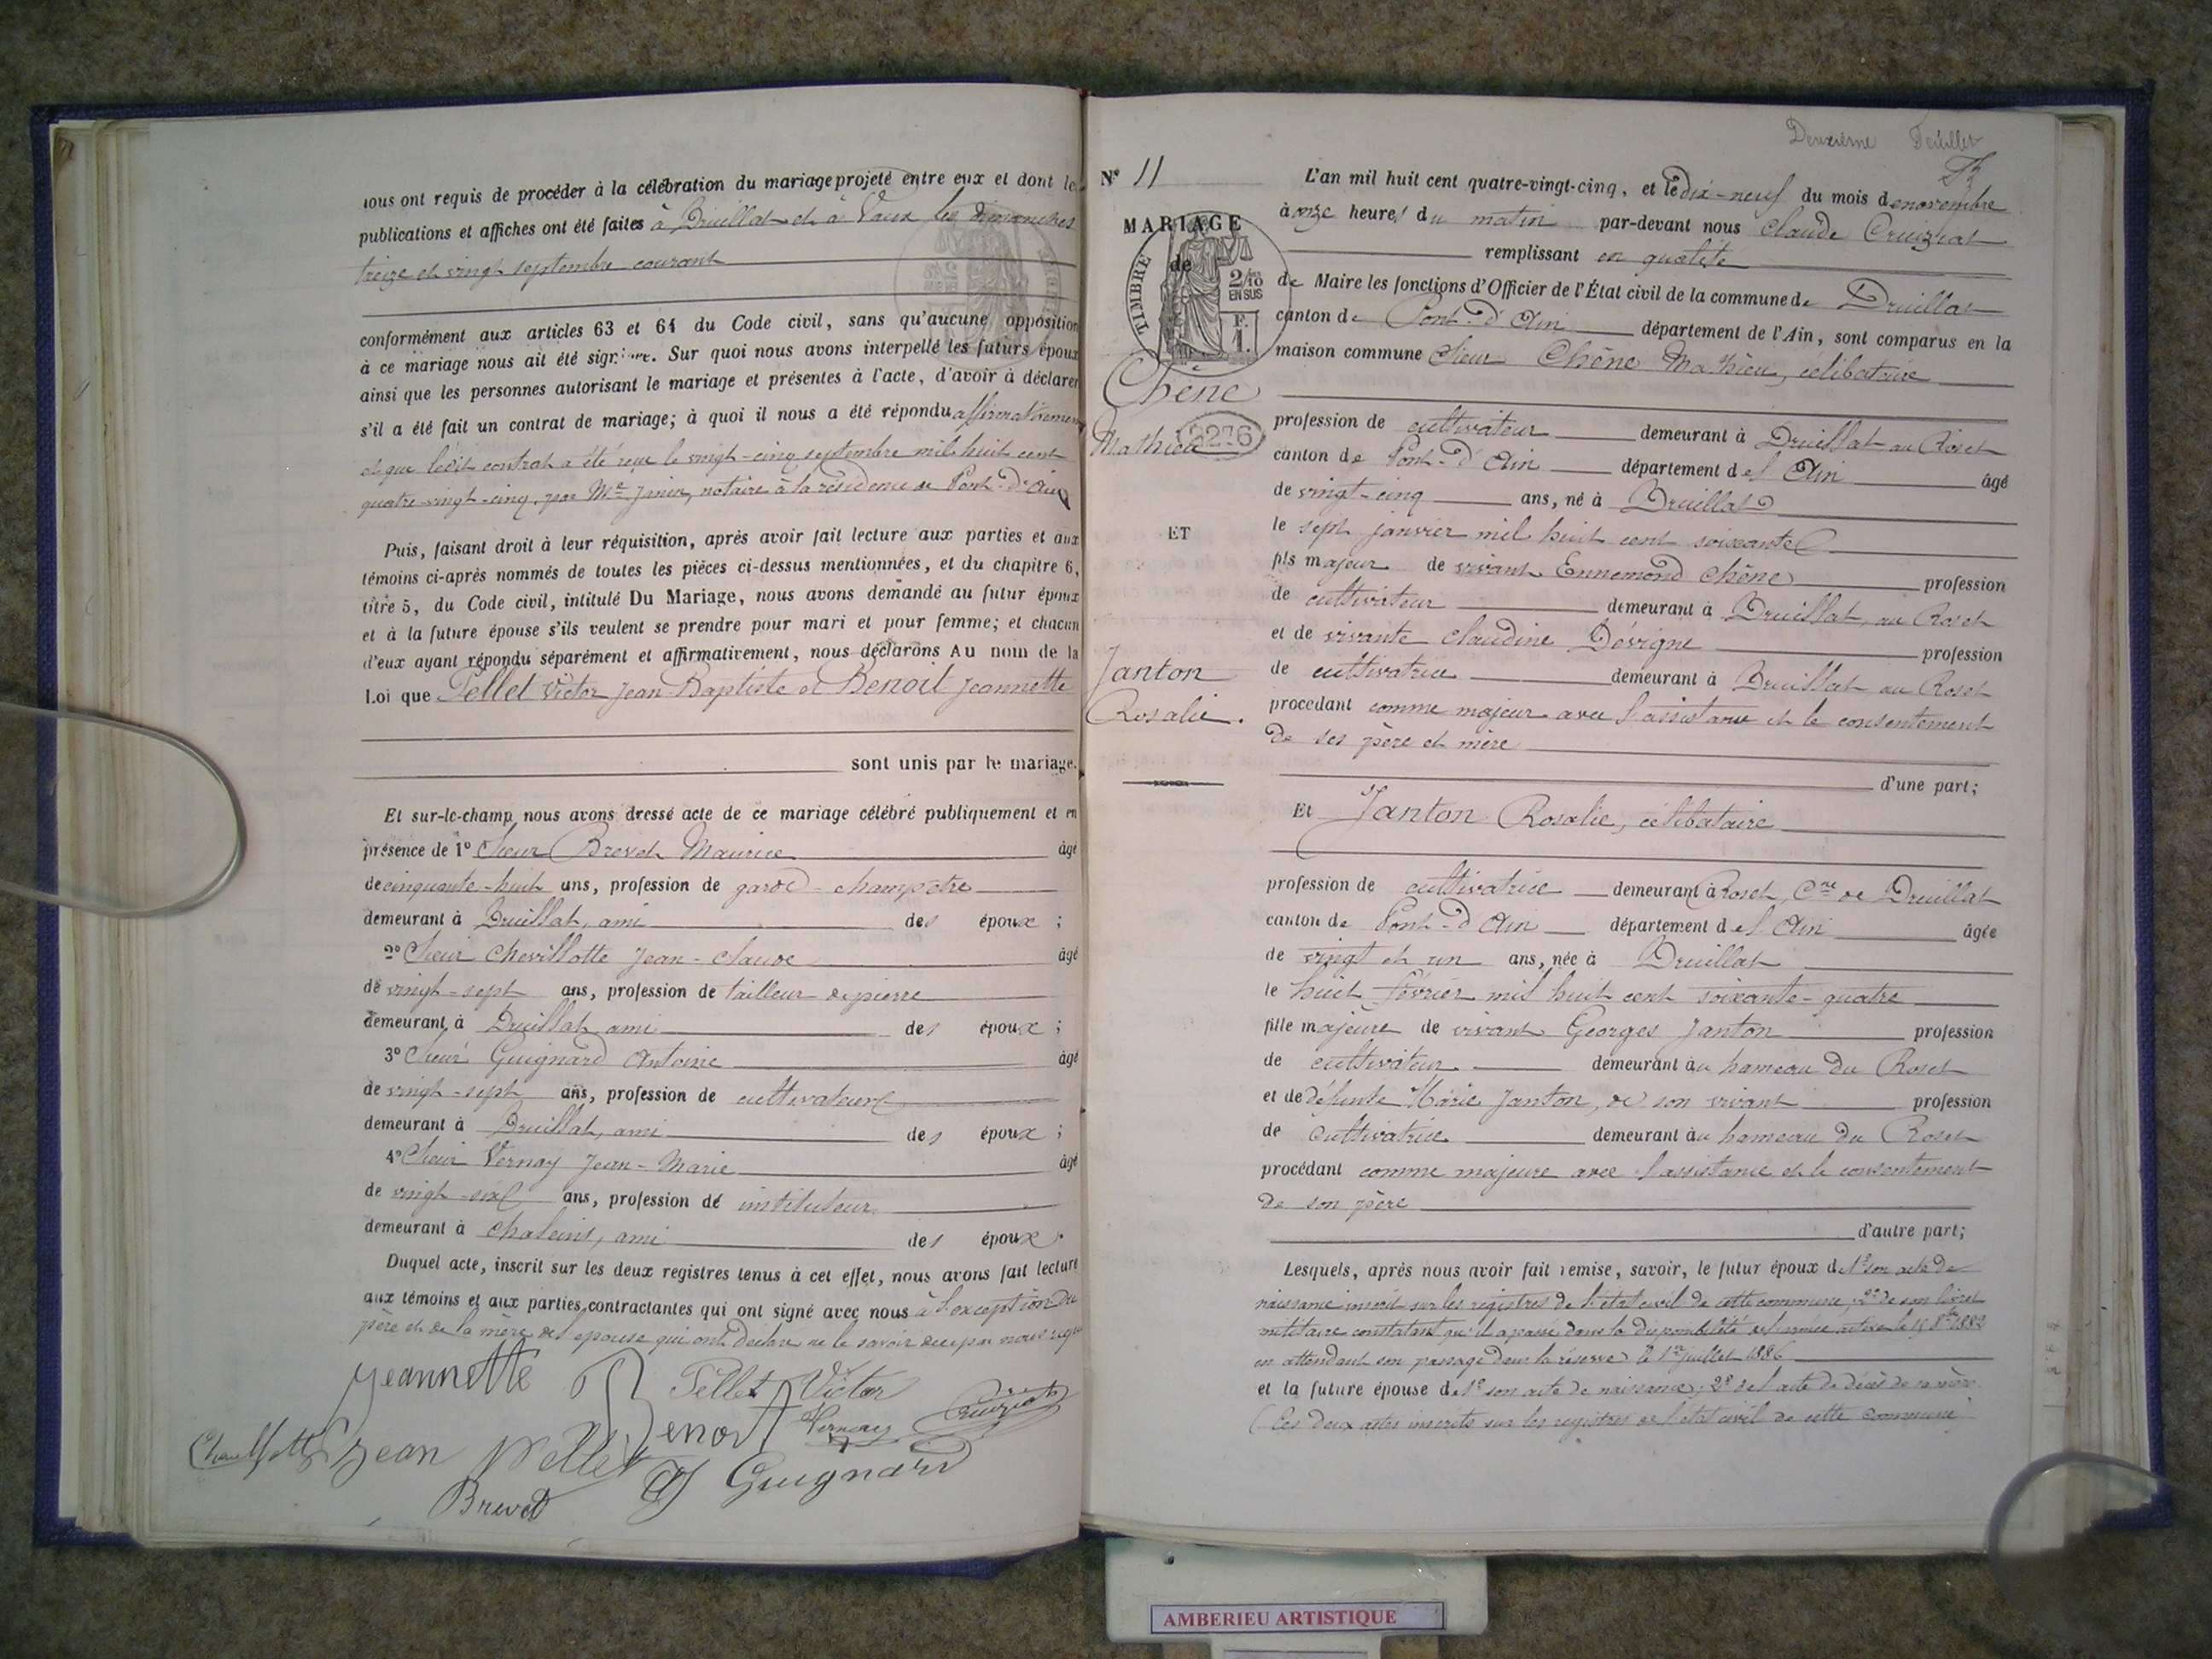 nous ont requis de procéder à la célébration du mariage projeté entre eux et dont les
publications et affiches ont été faites à Druillat et à Vaux les dimanches
treize et vingt septembre courant
conformément aux articles 63 et 64 du Code civil, sans qu'aucune opposition
à ce mariage nous ait été signifiée. Sur quoi nous avons interpellé les futurs époux
ainsi que les personnes autorisant le mariage et présentes à l'acte, d'avoir à déclarer
s'il a été fait un contrat de mariage; à quoi il nous a été répondu affirmativement
et que ledit contrat a été reçu le vingt-cinq septembre mil huit cent
quatre-vingt-cinq, par Me Janin, notaire à la résidence de Pont-d'Ain
Puis, faisant droit à leur réquisition, après avoir fait lecture aux parties et aux
témoins ci-après nommés de toutes les pièces ci-dessus mentionnées, et du chapitre 6,
titre 5, du Code civil, intitulé Du Mariage, nous avons demandé au futur époux
et à la future épouse s'ils veulent se prendre pour mari et pour femme; et chacun
d'eux ayant répondu séparément et affirmativement, nous déclarons Au nom de la
Loi que Pellet Victor Jean-Baptiste et Benoit Jeannette
sont unis par le mariage.
Et sur-le-champ nous avons dressé acte de ce mariage célébré publiquement et en
présence de 1° Sieur Brevet Maurice âgé
de cinquante-huit ans, profession de garde-champêtre
demeurant à Druillat, ami des époux ;
2° Sieur Chevillotte Jean-Claude âgé
de vingt-sept ans, profession de tailleur de pierre
demeurant à Druillat, ami des époux ;
3° Sieur Guignard Antoine âgé
de vingt-sept ans, profession de cultivateur
demeurant à Druillat, ami des époux ;
4° Sieur Vernay Jean-Marie âgé
de vingt-six ans, profession de instituteur
demeurant à Chaleins, ami des époux.
Duquel acte, inscrit sur les deux registres tenus à cet effet, nous avons fait lecture
aux témoins et aux parties contractantes qui ont signé avec nous à l'exception du
père et de la mère de l'épouse qui ont déclaré ne le savoir de ce par nous requis
Jeannette Pellet Victor
Benoit Vernay Cruiziat
Chevillotte Jean Pellet Guignard
Brevet
Deuxième Feuillet
N° 11
MARIAGE
de
TIMBRE
2/10
EN SUS
F.
1.
Chêne
Mathieu
2276
ET
Janton
Rosalie.
L'an mil huit cent quatre-vingt-cinq, et le dix-neuf du mois de novembre
à onze heures du matin par-devant nous Claude Cruiziat
remplissant en qualité
de Maire les fonctions d'Officier de l'État civil de la commune de Druillat
canton de Pont-d'Ain département de l'Ain, sont comparus en la
maison commune Sieur Chêne Mathieu, célibataire
profession de cultivateur demeurant à Druillat au Roset
canton de Pont-d'Ain département de l'Ain âgé
de vingt-cinq ans, né à Druillat
le sept janvier mil huit cent soixante
fils majeur de vivant Ennemond Chêne profession
de cultivateur demeurant à Druillat, au Roset
et de vivante Claudine Dévigne profession
de cultivatrice demeurant à Druillat au Roset
procédant comme majeur avec l'assistance et le consentement
de ses père et mère
d'une part;
Et Janton Rosalie, célibataire
profession de cultivatrice demeurant à Roset, Cne de Druillat
canton de Pont-d'Ain département de l'Ain âgée
de vingt et un ans, née à Druillat
le huit février mil huit cent soixante-quatre
fille majeure de vivant Georges Janton profession
de cultivateur demeurant au hameau du Roset
et de défunte Marie Janton, de son vivant profession
de cultivatrice demeurant au hameau du Roset
procédant comme majeure avec l'assistance et le consentement
de son père
d'autre part;
Lesquels, après nous avoir fait remise, savoir, le futur époux de 1° son acte de
naissance inscrit sur les registres de l'état civil de cette commune, 2° de son livret
militaire constatant qu'il a passé dans la disponibilité de l'armée active le
en attendant son passage dans la réserve le 1er juillet 1886
et la future épouse de 1° son acte de naissance; 2° de l'acte de décès de sa mère
(Ces deux actes inscrits sur les registres de l'état civil de cette commune
AMBERIEU ARTISTIQUE